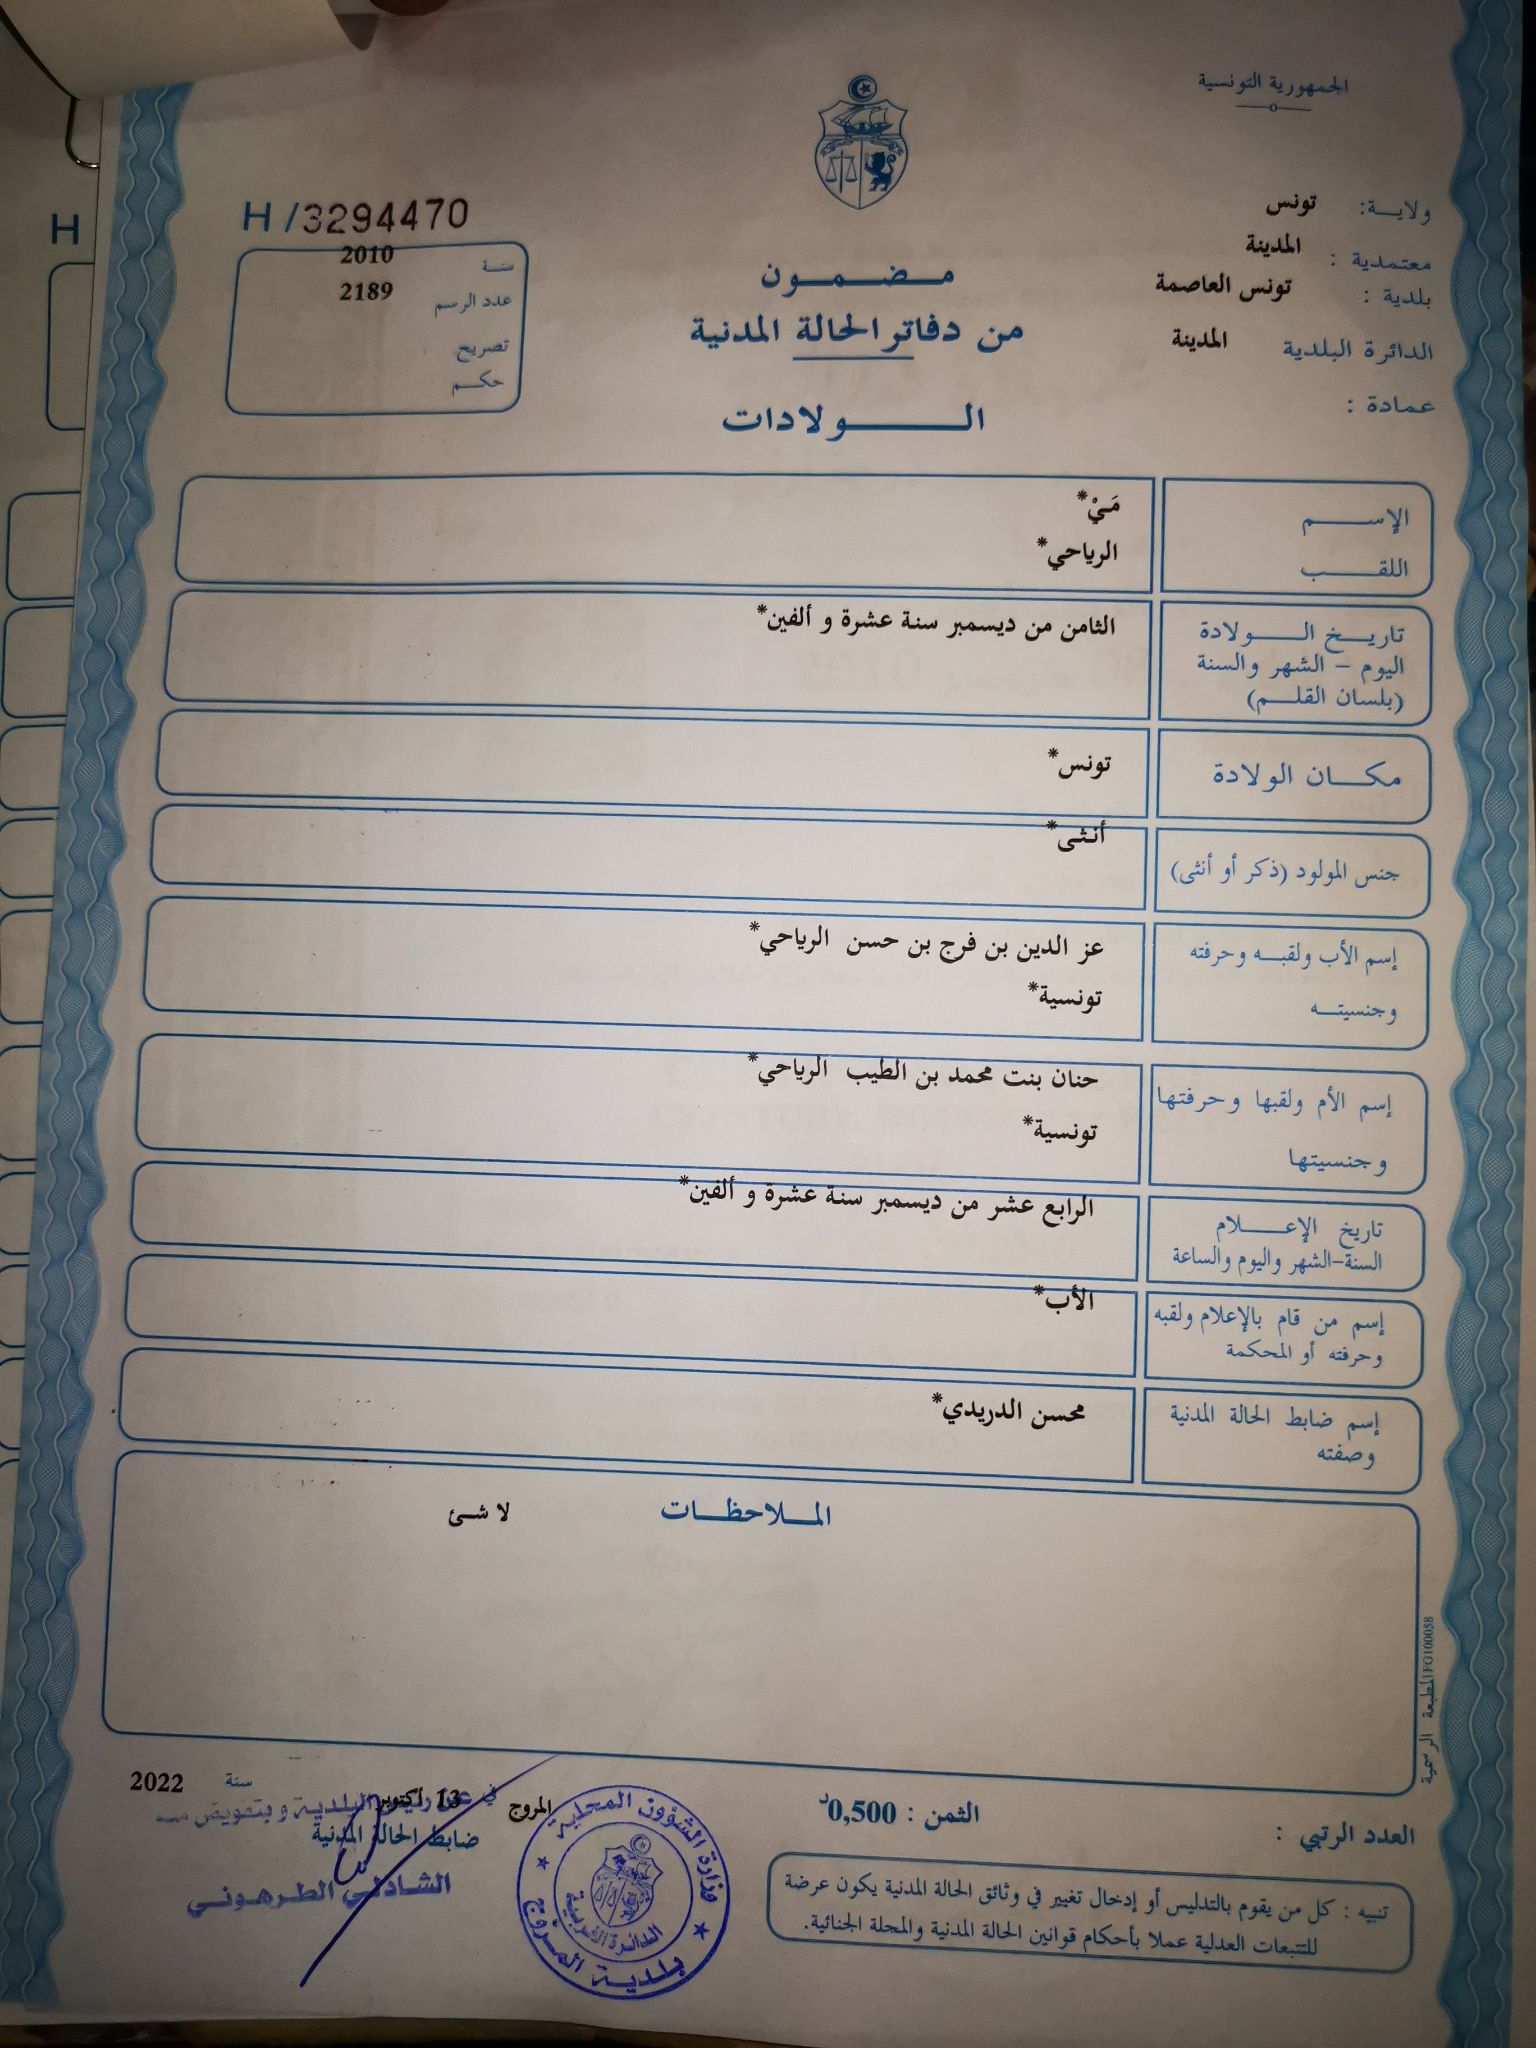 الجمهورية التونسية
ولاية: تونس
معتمدية : المدينة
بلدية : تونس العاصمة
الدائرة البلدية المدينة
عمادة :
H
H/3294470
سنة 2010
عدد الرسم 2189
تصريح
حكم
مضمون
من دفاتر الحالة المدنية
الولادات
الإسم مَيْ*
اللقب الرياحي*
تاريخ الولادة الثامن من ديسمبر سنة عشرة و ألفين*
اليوم - الشهر والسنة
(بلسان القلم)
مكان الولادة تونس*
جنس المولود (ذكر أو أنثى) أنثى*
إسم الأب ولقبه وحرفته عز الدين بن فرج بن حسن الرياحي*
وجنسيته تونسية*
إسم الأم ولقبها وحرفتها حنان بنت محمد بن الطيب الرياحي*
وجنسيتها تونسية*
تاريخ الإعلام الرابع عشر من ديسمبر سنة عشرة و ألفين*
السنة-الشهر واليوم والساعة
إسم من قام بالإعلام ولقبه الأب*
وحرفته أو المحكمة
إسم ضابط الحالة المدنية محسن الدريدي*
وصفته
الملاحظات لا شئ
المطبعة الرسمية FG100058
العدد الرتبي :
الثمن : 0,500د
المروج في 13 أكتوبر سنة 2022
عن رئيس البلدية و بتفويض منه
ضابط الحالة المدنية
الشاذلي الطرهوني
وزارة الشؤون المحلية
الدائرة الغربية
بلدية المروج
تنبيه : كل من يقوم بالتدليس أو إدخال تغيير في وثائق الحالة المدنية يكون عرضة
للتتبعات العدلية عملا بأحكام قوانين الحالة المدنية والمجلة الجنائية.